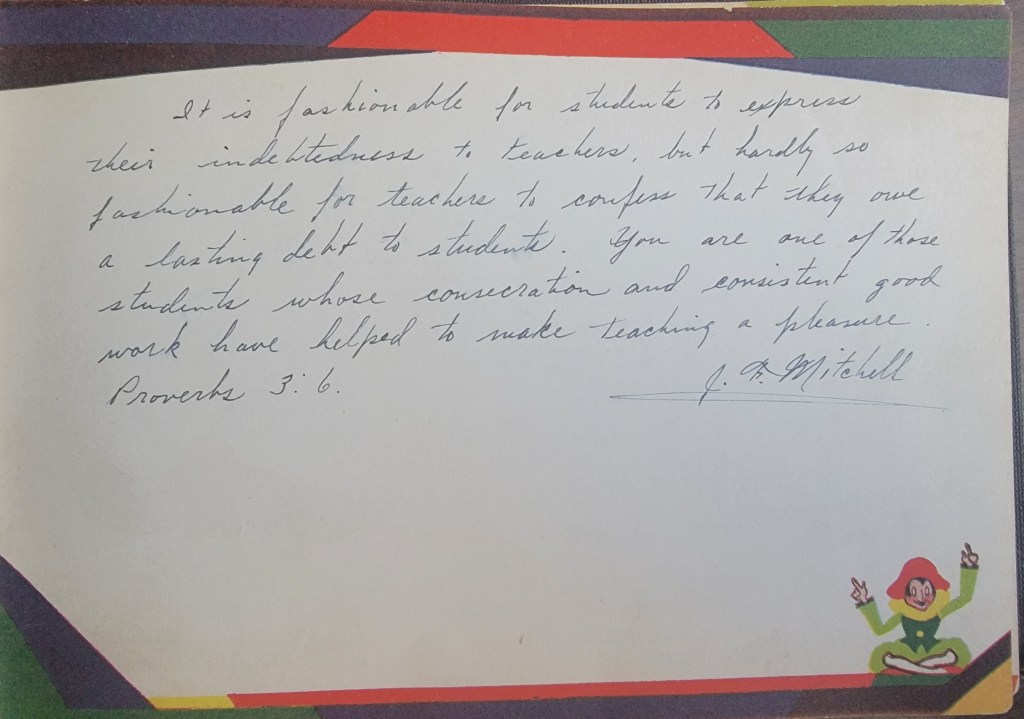 It is fashionable for students to express
their indebtedness to teachers, but hardly so
fashionable for teachers to confess that they owe
a lasting debt to students. You are one of those
students whose consecration and consistent good
work have helped to make teaching a pleasure.
Proverbs 3:6. J. F. Mitchell